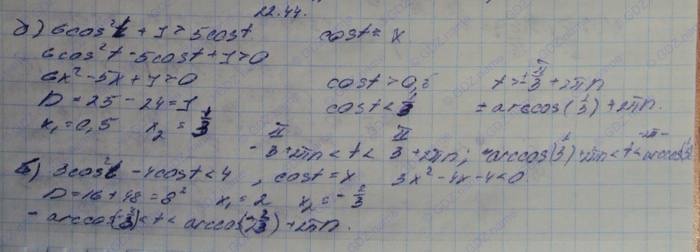 22.44.
а) 6cos²t + 1 > 5cost cost = x
6cos²t - 5cost + 1 > 0
6x² - 5x + 1 > 0 cost > 0,5 t > ± π/3 + 2πn
D = 25 - 24 = 1 cost < 1/3 ± arccos(1/3) + 2πn.
x₁ = 0,5 x₂ = 1/3
- π/3 + 2πn < t < π/3 + 2πn; arccos(1/3) + 2πn < t < 2π - arccos 1/3
б) 3cos²t - 4cost < 4, cost = x 3x² - 4x - 4 < 0
D = 16 + 48 = 8² x₁ = 2 x₂ = - 2/3
- arccos(-2/3) < t < arccos(-2/3) + 2πn.